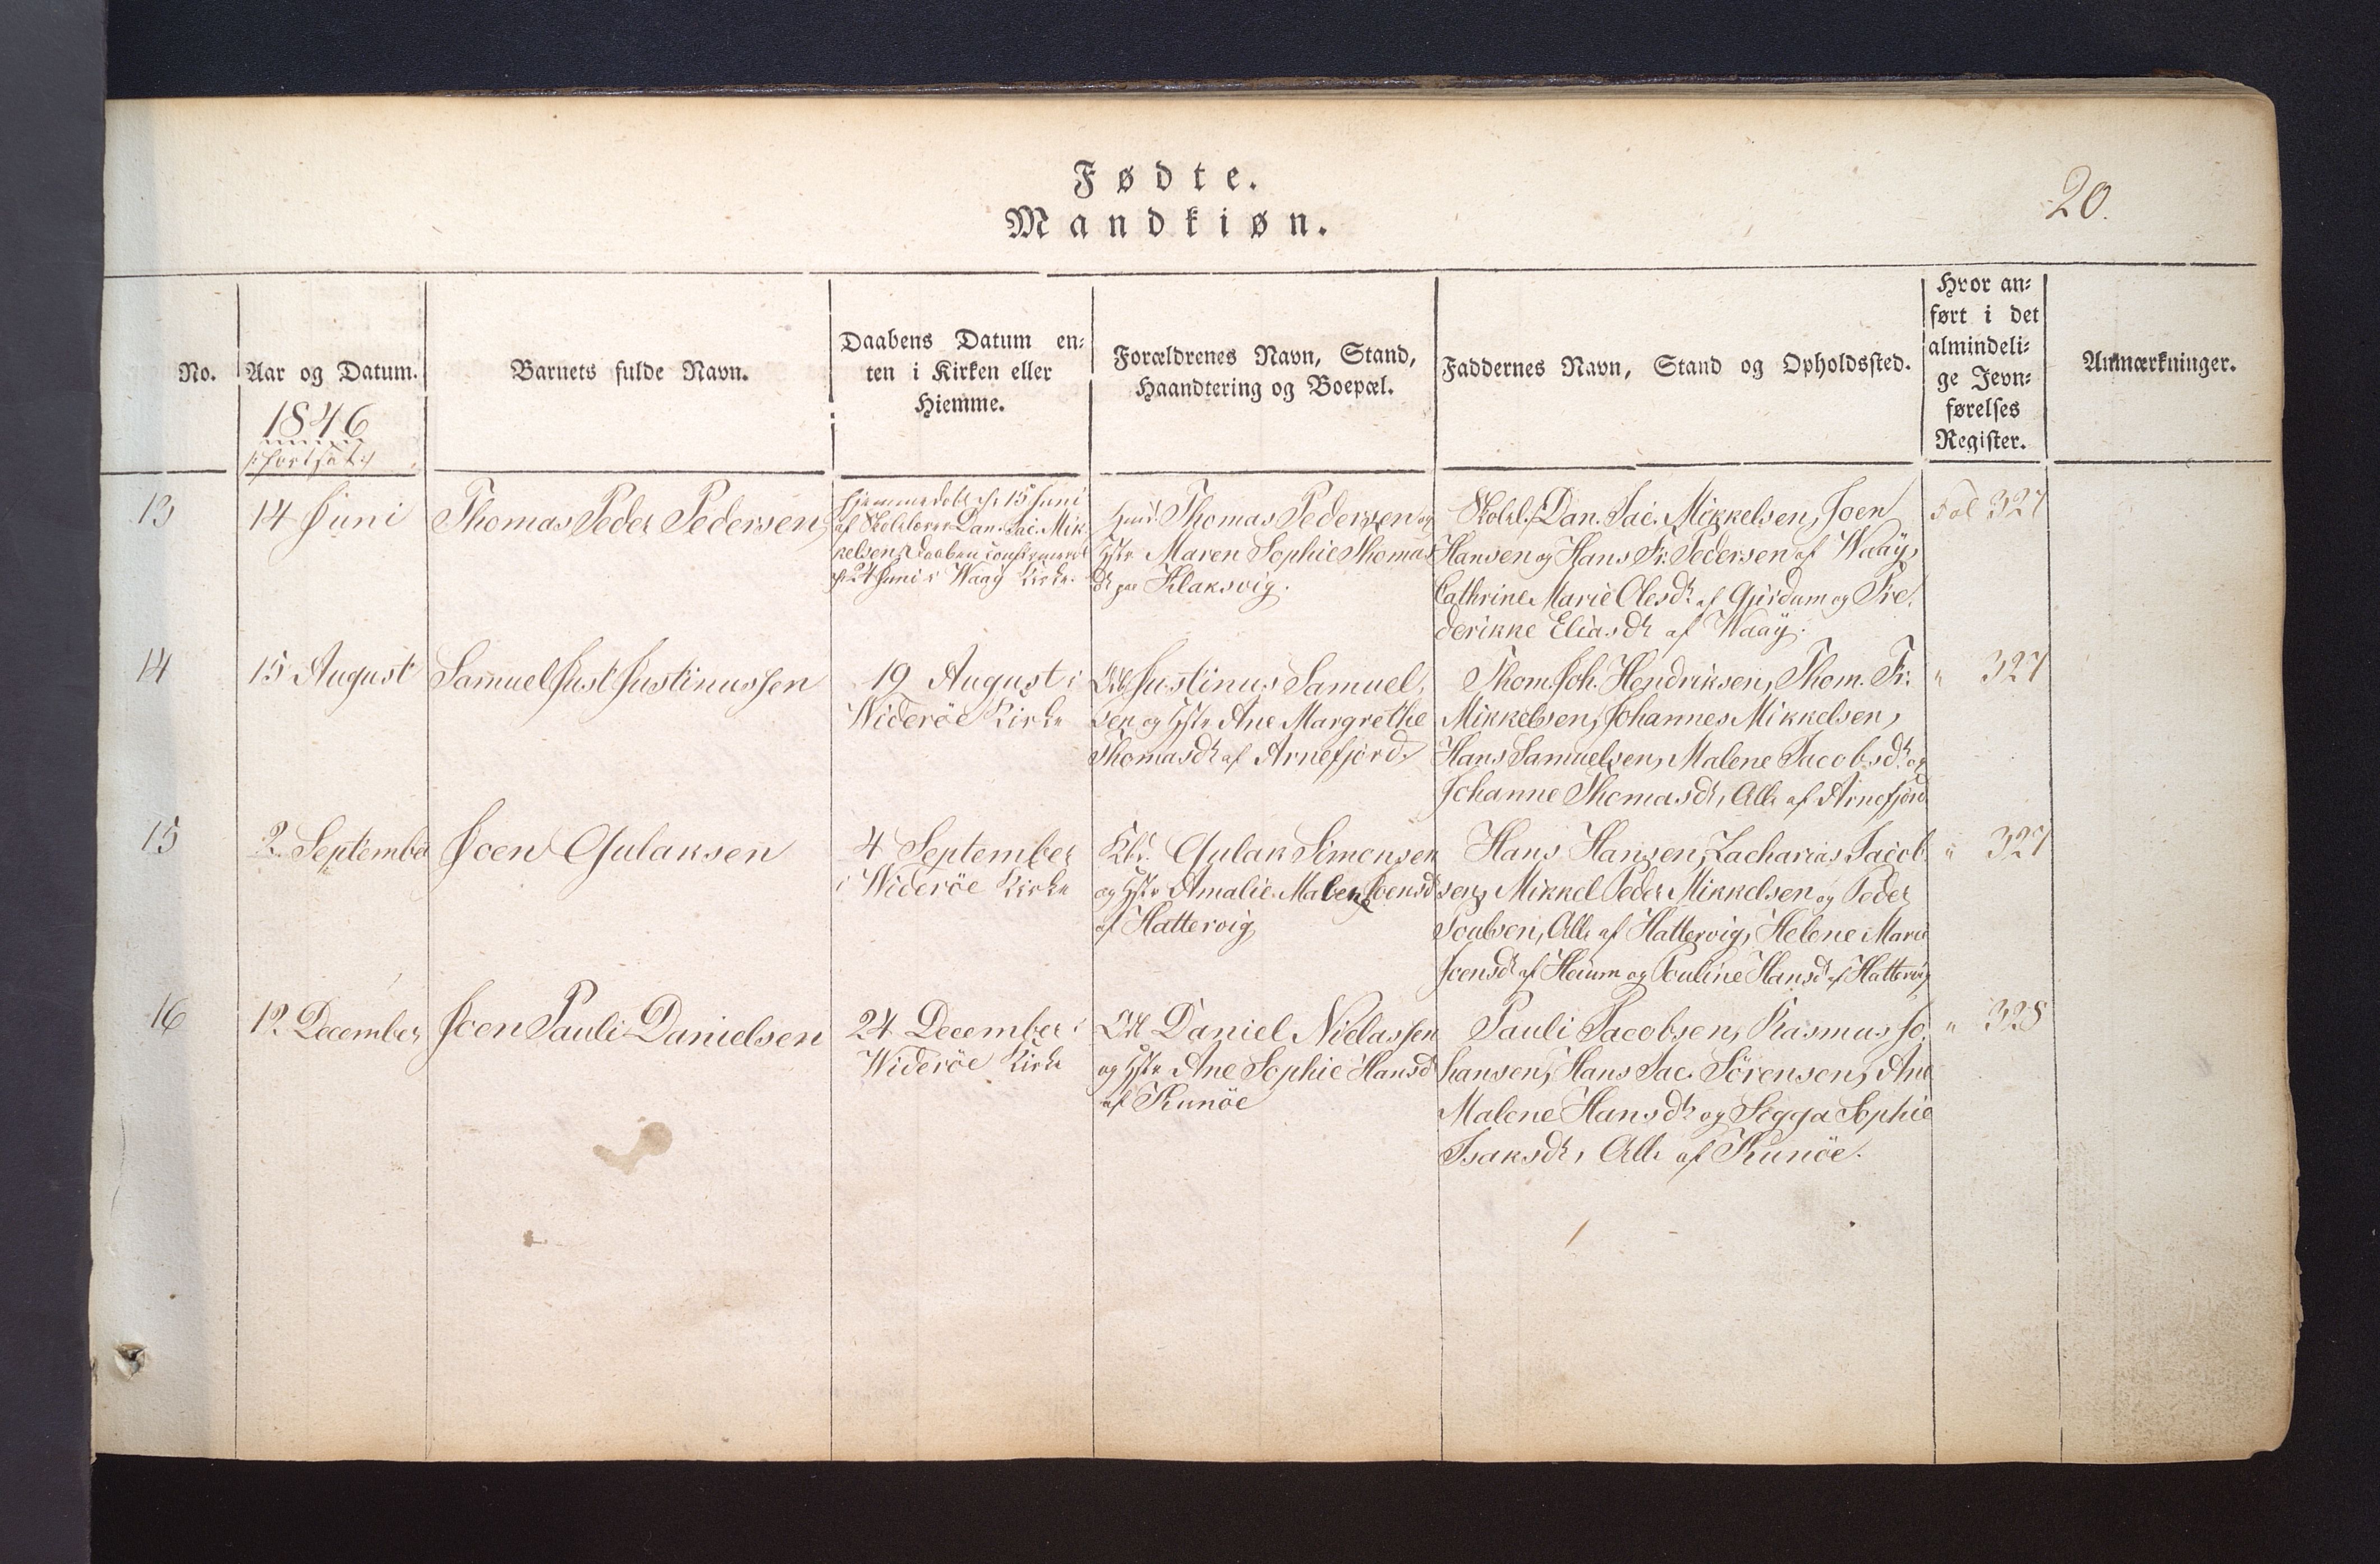 Fødte.
Mandkiøn.
20.
No.
Aar og Datum.
1846
/: fortsat :/
Barnets fulde Navn.
Daabens Datum en-
ten i Kirken eller
Hiemme.
Forældrenes Navn, Stand,
Haandtering og Boepæl.
Faddernes Navn, Stand og Opholdssted.
Hvor an-
ført i det
almindeli-
ge Jevn-
førelses
Register.
Anmærkninger.
13
14 Juni
Thomas Peder Pedersen
Hjemmedøbt d. 15 Juni
af Skolelærer Dan. Jac. Mik-
kelsen, Daaben confirmeret
d. 24 Juni i Waaÿ Kirke.
Thomas Pedersen og
Hstr Maren Sophie Thomas
dr paa Klaksvig.
Skolel. Dan. Jac. Mikkelsen, Joen
Hansen og Hans Fr. Pedersen af Waaÿ,
Cathrine Marie Olesdr af Gjerdum og Fre-
derikke Eliasdr af Waaÿ.
Fol 327
14
15 August
Samuel Just Justinussen
19 August i
Wideröe Kirke
Justinus Samuel-
sen og Hstr Ane Margrethe
Thomasdr af Arnefjord.
Thom. Joh. Hendriksen, Thom. Fr.
Mikkelsen, Johannes Mikkelsen,
Hans Samuelsen, Malene Jacobsdr og
Johanne Thomasdr, Alle af Arnefjord
" 327
15
2 September
Joen Gulaksen
4 September
i Wideröe Kirke
Kbd. Gulak Simonsen
og Hstr Amalie Malene Joensd
af Hattervig
Hans Hansen, Zacharias Jacob
sen, Mikkel Peder Mikkelsen og Peder
Poulsen, Alle af Hattervig, Helene Marie
Joensdr af Heium og Pouline Hansdr af Hattervig
" 327
16
12 December
Joen Pauli Danielsen
24 December i
Wideröe Kirke
Daniel Niclassen
og Hstr Ane Sophie Hansd
af Kunöe
Pauli Jacobsen, Rasmus Jo-
hansen, Hans Jac. Sörensen, Ane
Malene Hansdr og Sigga Sophie
Isaksdr, Alle af Kunöe.
" 328